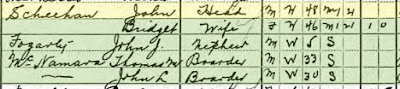 Scheehan John Head M W 48 M 21
Bridget Wife F W 46 M 21 1 0
Fogarty John J. Nephew M W 5 S
McNamara Thomas M Boarder M W 33 S
— John L Boarder M W 30 S